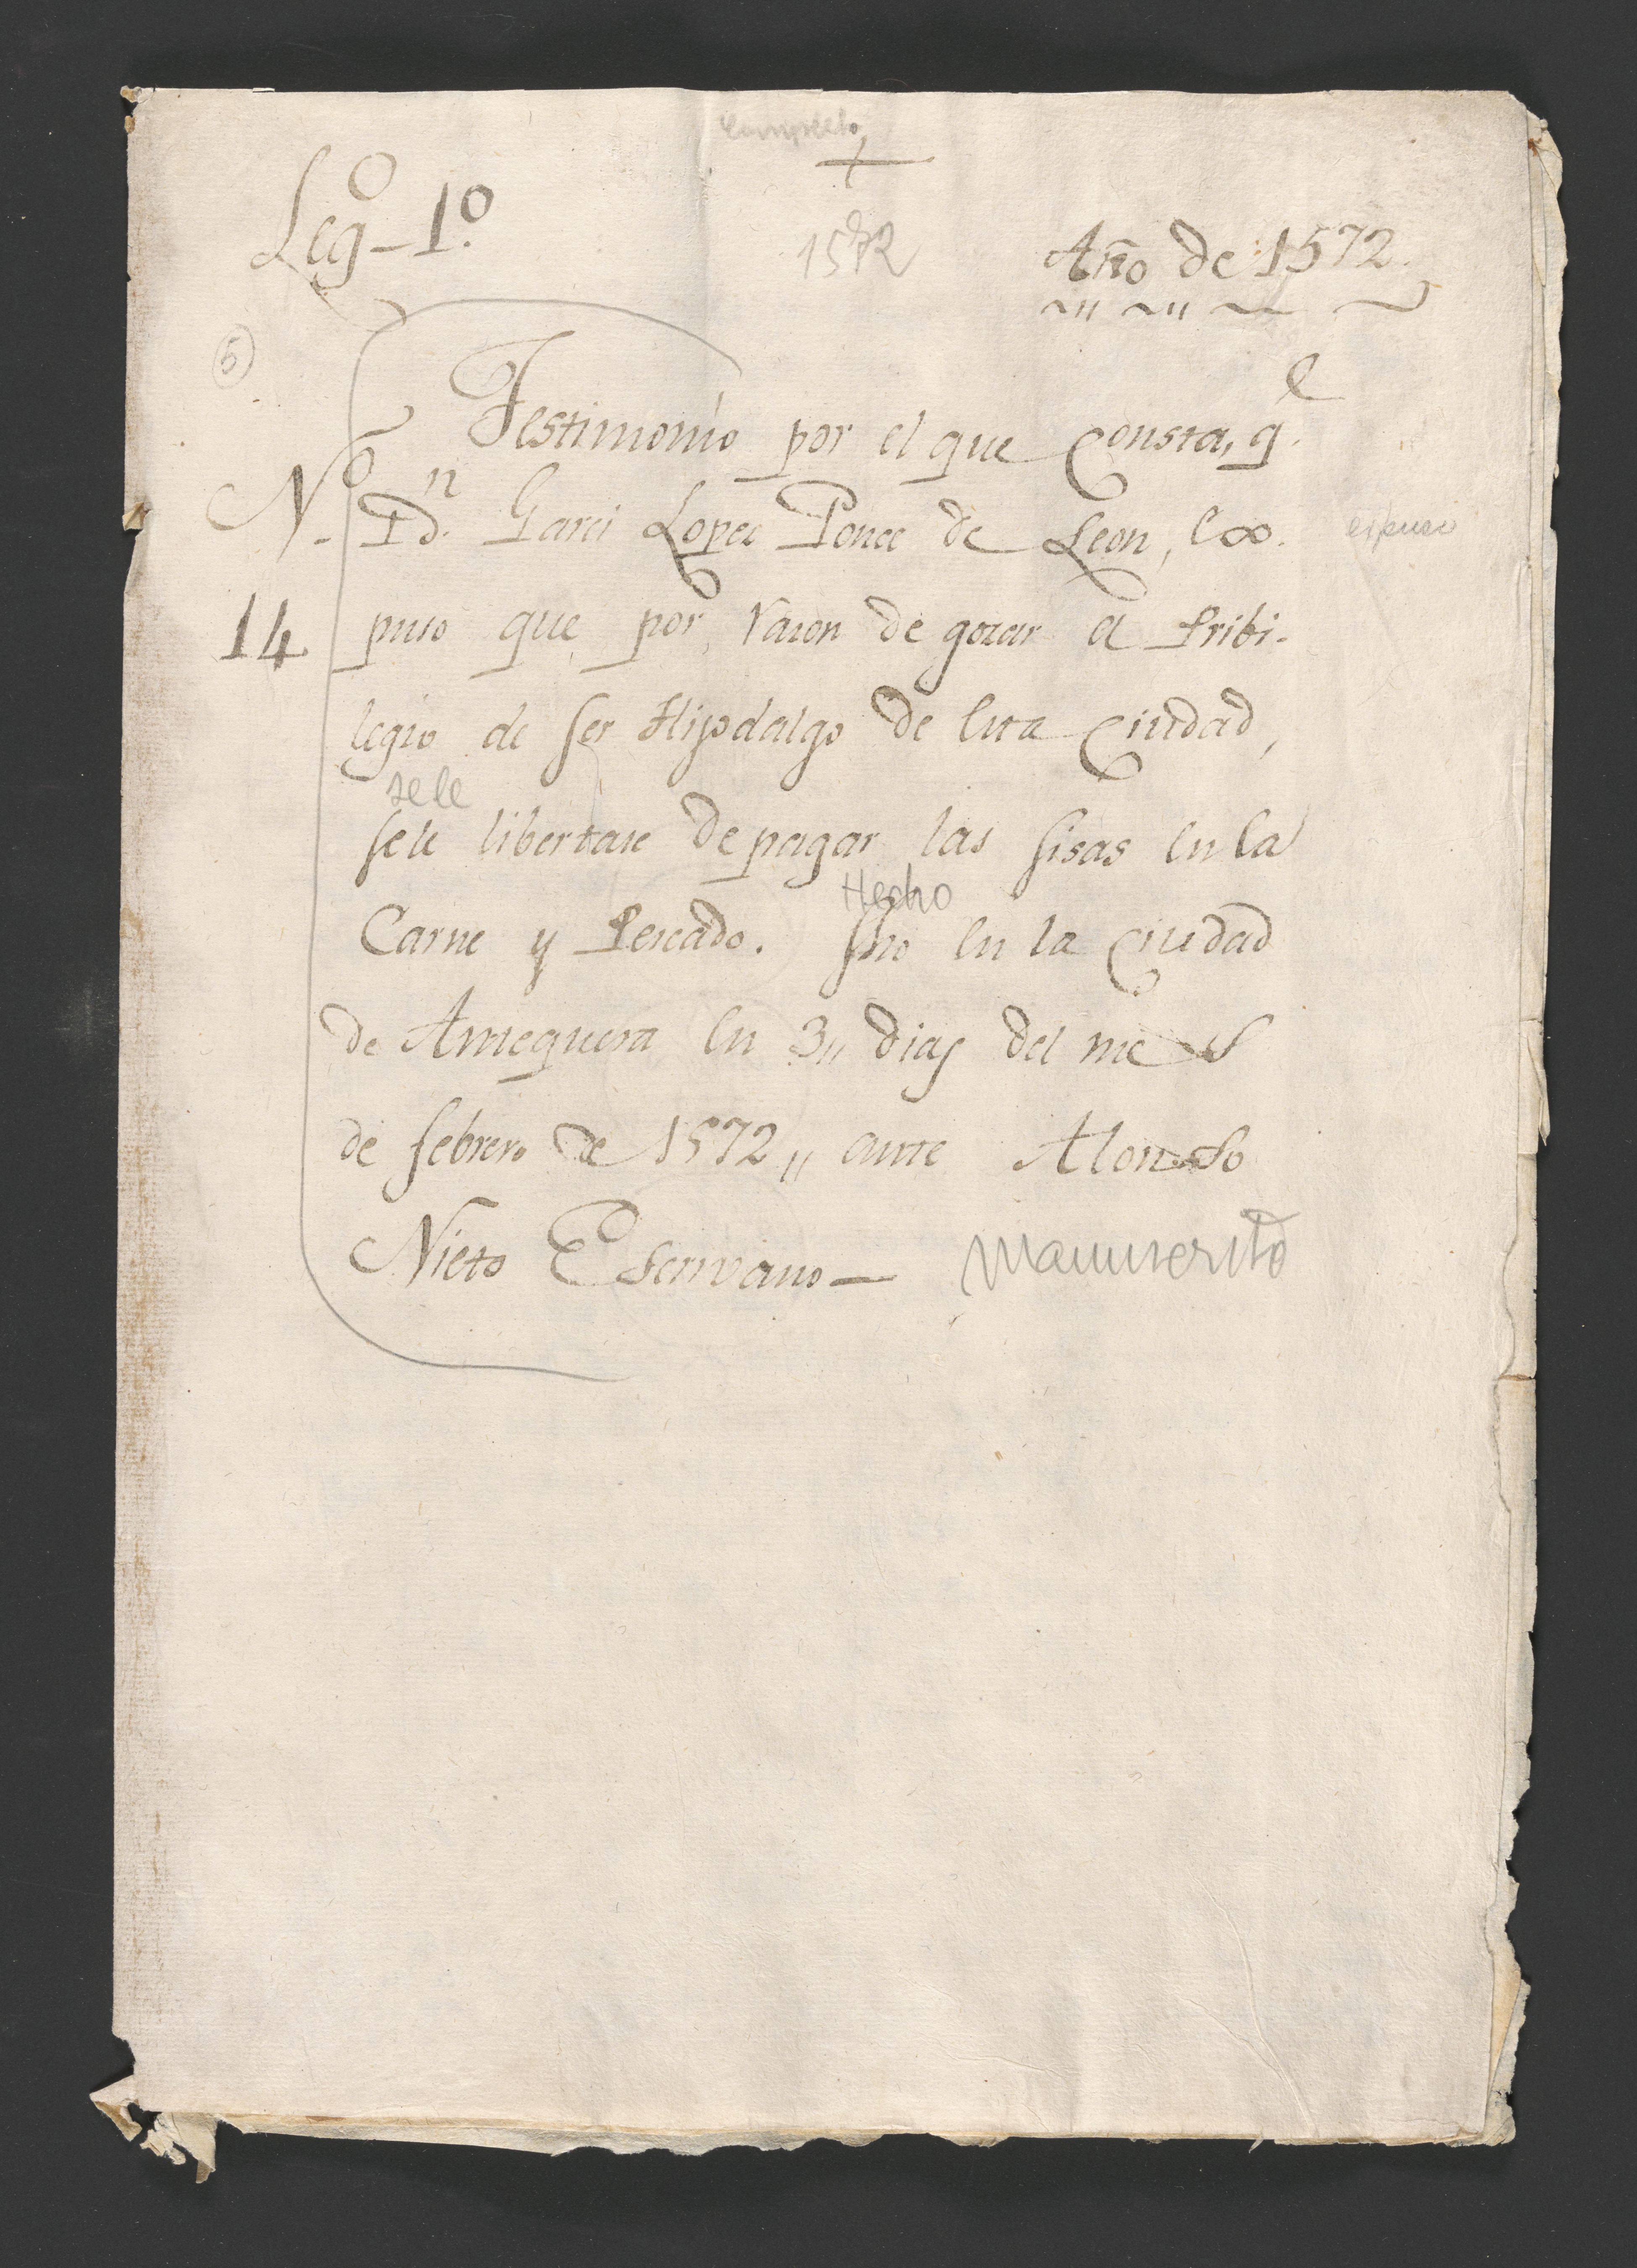 Completo
+
Leg.º 1.º
1572
Año de 1572.
5
Testimonio por el que Consta, q.e
N.º D.n Garci Lopez Ponce de Leon, Ex-
14 puso que por razon de gozar el Pribi-
legio de ser Hijodalgo de esta Ciudad,
se le
se le libertase de pagar las sisas en la
Hecho
Carne y Pescado. fho en la Ciudad
de Antequera en 3,, dias del mes
de febrero de 1572,, ante Alonso
Nieto Escrivano —
Manuscrito